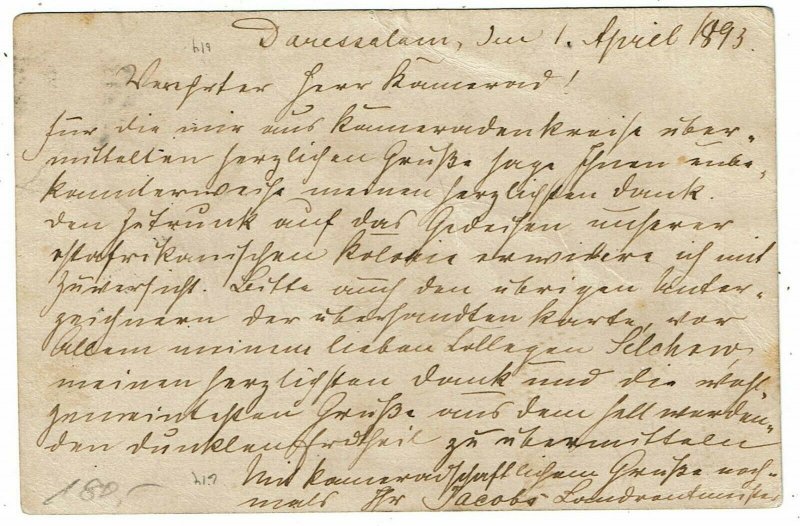 Daressalam, den 1. April 1893.
Verehrter Herr Kamerad!
Für die mir aus Kameradenkreise über-
mittelten herzlichen Grüße sage Ihnen unbe-
kannterweise meinen herzlichsten Dank.
Den Zutrunk auf das Gedeihen unserer
ostafrikanischen Kolonie erwidere ich mit
Zuversicht. Bitte auch den übrigen Unter-
zeichnern der übersandten Karte, vor
allem meinem lieben Collegen Selchow,
meinen herzlichsten Dank und die wohl-
gemeintesten Grüße aus dem hell werden-
den dunklen Erdtheil zu übermitteln
Mit kameradschaftlichem Gruße noch-
mals Ihr Jacobs Landrentmeister
180,-